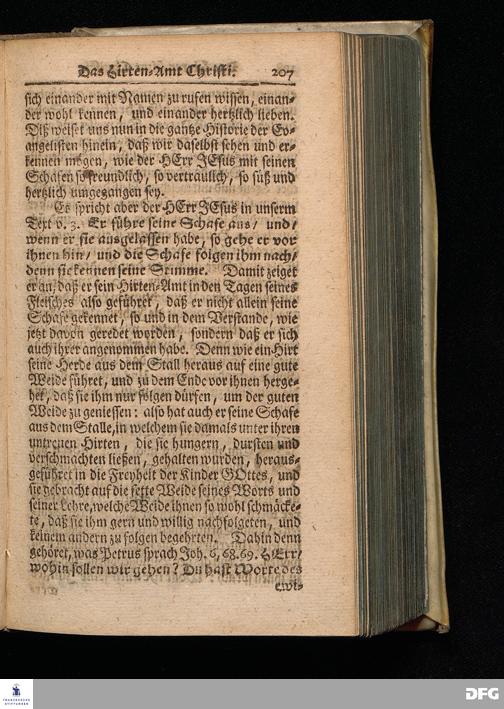 Das Hirten-Amt Christi. 207
sich einander mit Namen zu rufen wissen, einan-
der wohl kennen, und einander hertzlich lieben.
Diß weiset uns nun in die gantze Historie der Ev-
angelisten hinein, daß wir daselbst sehen und er-
kennen mögen, wie der HErr JEsus mit seinen
Schafen so freundlich, so vertraulich, so süß und
hertzlich umgegangen sey.
Es spricht aber der HErr JEsus in unserm
Text v. 3. Er führe seine Schafe aus/ und/
wenn er sie ausgelassen habe, so gehe er vor
ihnen hin/ und die Schafe folgen ihm nach/
denn sie kennen seine Stimme. Damit zeiget
er an, daß er sein Hirten-Amt in den Tagen seines
Fleisches also geführet, daß er nicht allein seine
Schafe gekennet, so und in dem Verstande, wie
jetzt davon geredet worden, sondern daß er sich
auch ihrer angenommen habe. Denn wie ein Hirt
seine Herde aus dem Stall heraus auf eine gute
Weide führet, und zu dem Ende vor ihnen herge-
het, daß sie ihm nur folgen dürfen, um der guten
Weide zu geniessen: also hat auch er seine Schafe
aus dem Stalle, in welchem sie damals unter ihren
untreuen Hirten, die sie hungern, dursten und
verschmachten ließen, gehalten wurden, heraus-
geführet in die Freyheit der Kinder GOttes, und
sie gebracht auf die fette Weide seines Worts und
seiner Lehre, welche Weide ihnen so wohl schmäcke-
te, daß sie ihm gern und willig nachfolgeten, und
keinem andern zu folgen begehrten. Dahin denn
gehöret, was Petrus sprach Joh. 6, 68. 69. HErr/
wohin sollen wir gehen? Du hast Worte des
ewi-
FRANCKESCHE
STIFTUNGEN
DFG